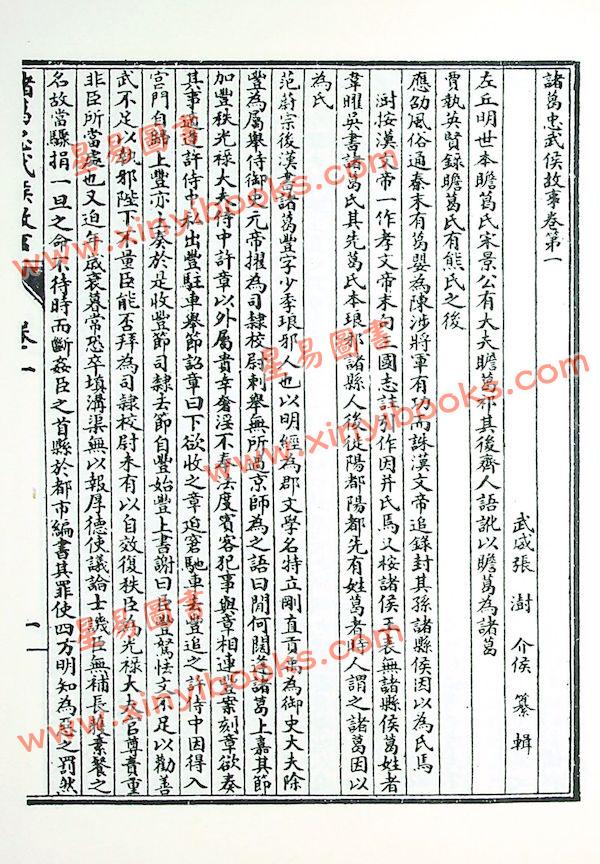 諸葛忠武侯故事卷第一
武威張澍介侯纂輯
左丘明世本瞻葛氏宋景公有大夫瞻葛祁其後齊人語訛以瞻葛為諸葛
賈執英賢錄瞻葛氏有熊氏之後
應劭風俗通秦末有葛嬰為陳涉將軍有功而誅漢文帝追錄封其孫諸縣侯因以為氏焉
澍按漢文帝一作孝文帝末句三國志註引作因并氏焉又按諸侯王表無諸縣侯葛姓者
韋曜吳書諸葛氏其先葛氏本琅邪諸縣人後徙陽都陽都先有姓葛者時人謂之諸葛因以
為氏
范蔚宗後漢書諸葛豐字少季琅邪人也以明經為郡文學名特立剛直貢禹為御史大夫除
豐為屬舉侍御史元帝擢為司隸校尉刺舉無所避京師為之語曰間何闊逢諸葛上嘉其節
加豐秩光祿大夫侍中許章以外屬貴幸奢淫不奉法度賓客犯事與章相連豐案劾章欲奏
其事適逢許侍中私出豐駐車舉節詔章曰下欲收之章迫窘馳車去豐追之許侍中因得入
宮門自歸上豐亦上奏於是收豐節司隸去節自豐始豐上書謝曰臣豐駑怯文不足以勸善
武不足以執邪陛下不量臣能否拜為司隸校尉未有以自效復秩臣為光祿大夫官尊責重
非臣所當處也又迫年歲衰暮常恐卒填溝渠無以報厚德使議論士譏臣無補長獲素餐之
名故常願捐一旦之命不待時而斷姦臣之首縣於都市編書其罪使四方明知為惡之罰然
諸葛忠武侯故事
卷一
一
星易圖書
www.xinyibooks.com
星易圖書
www.xinyibooks.com
星易圖書
www.xinyibooks.com